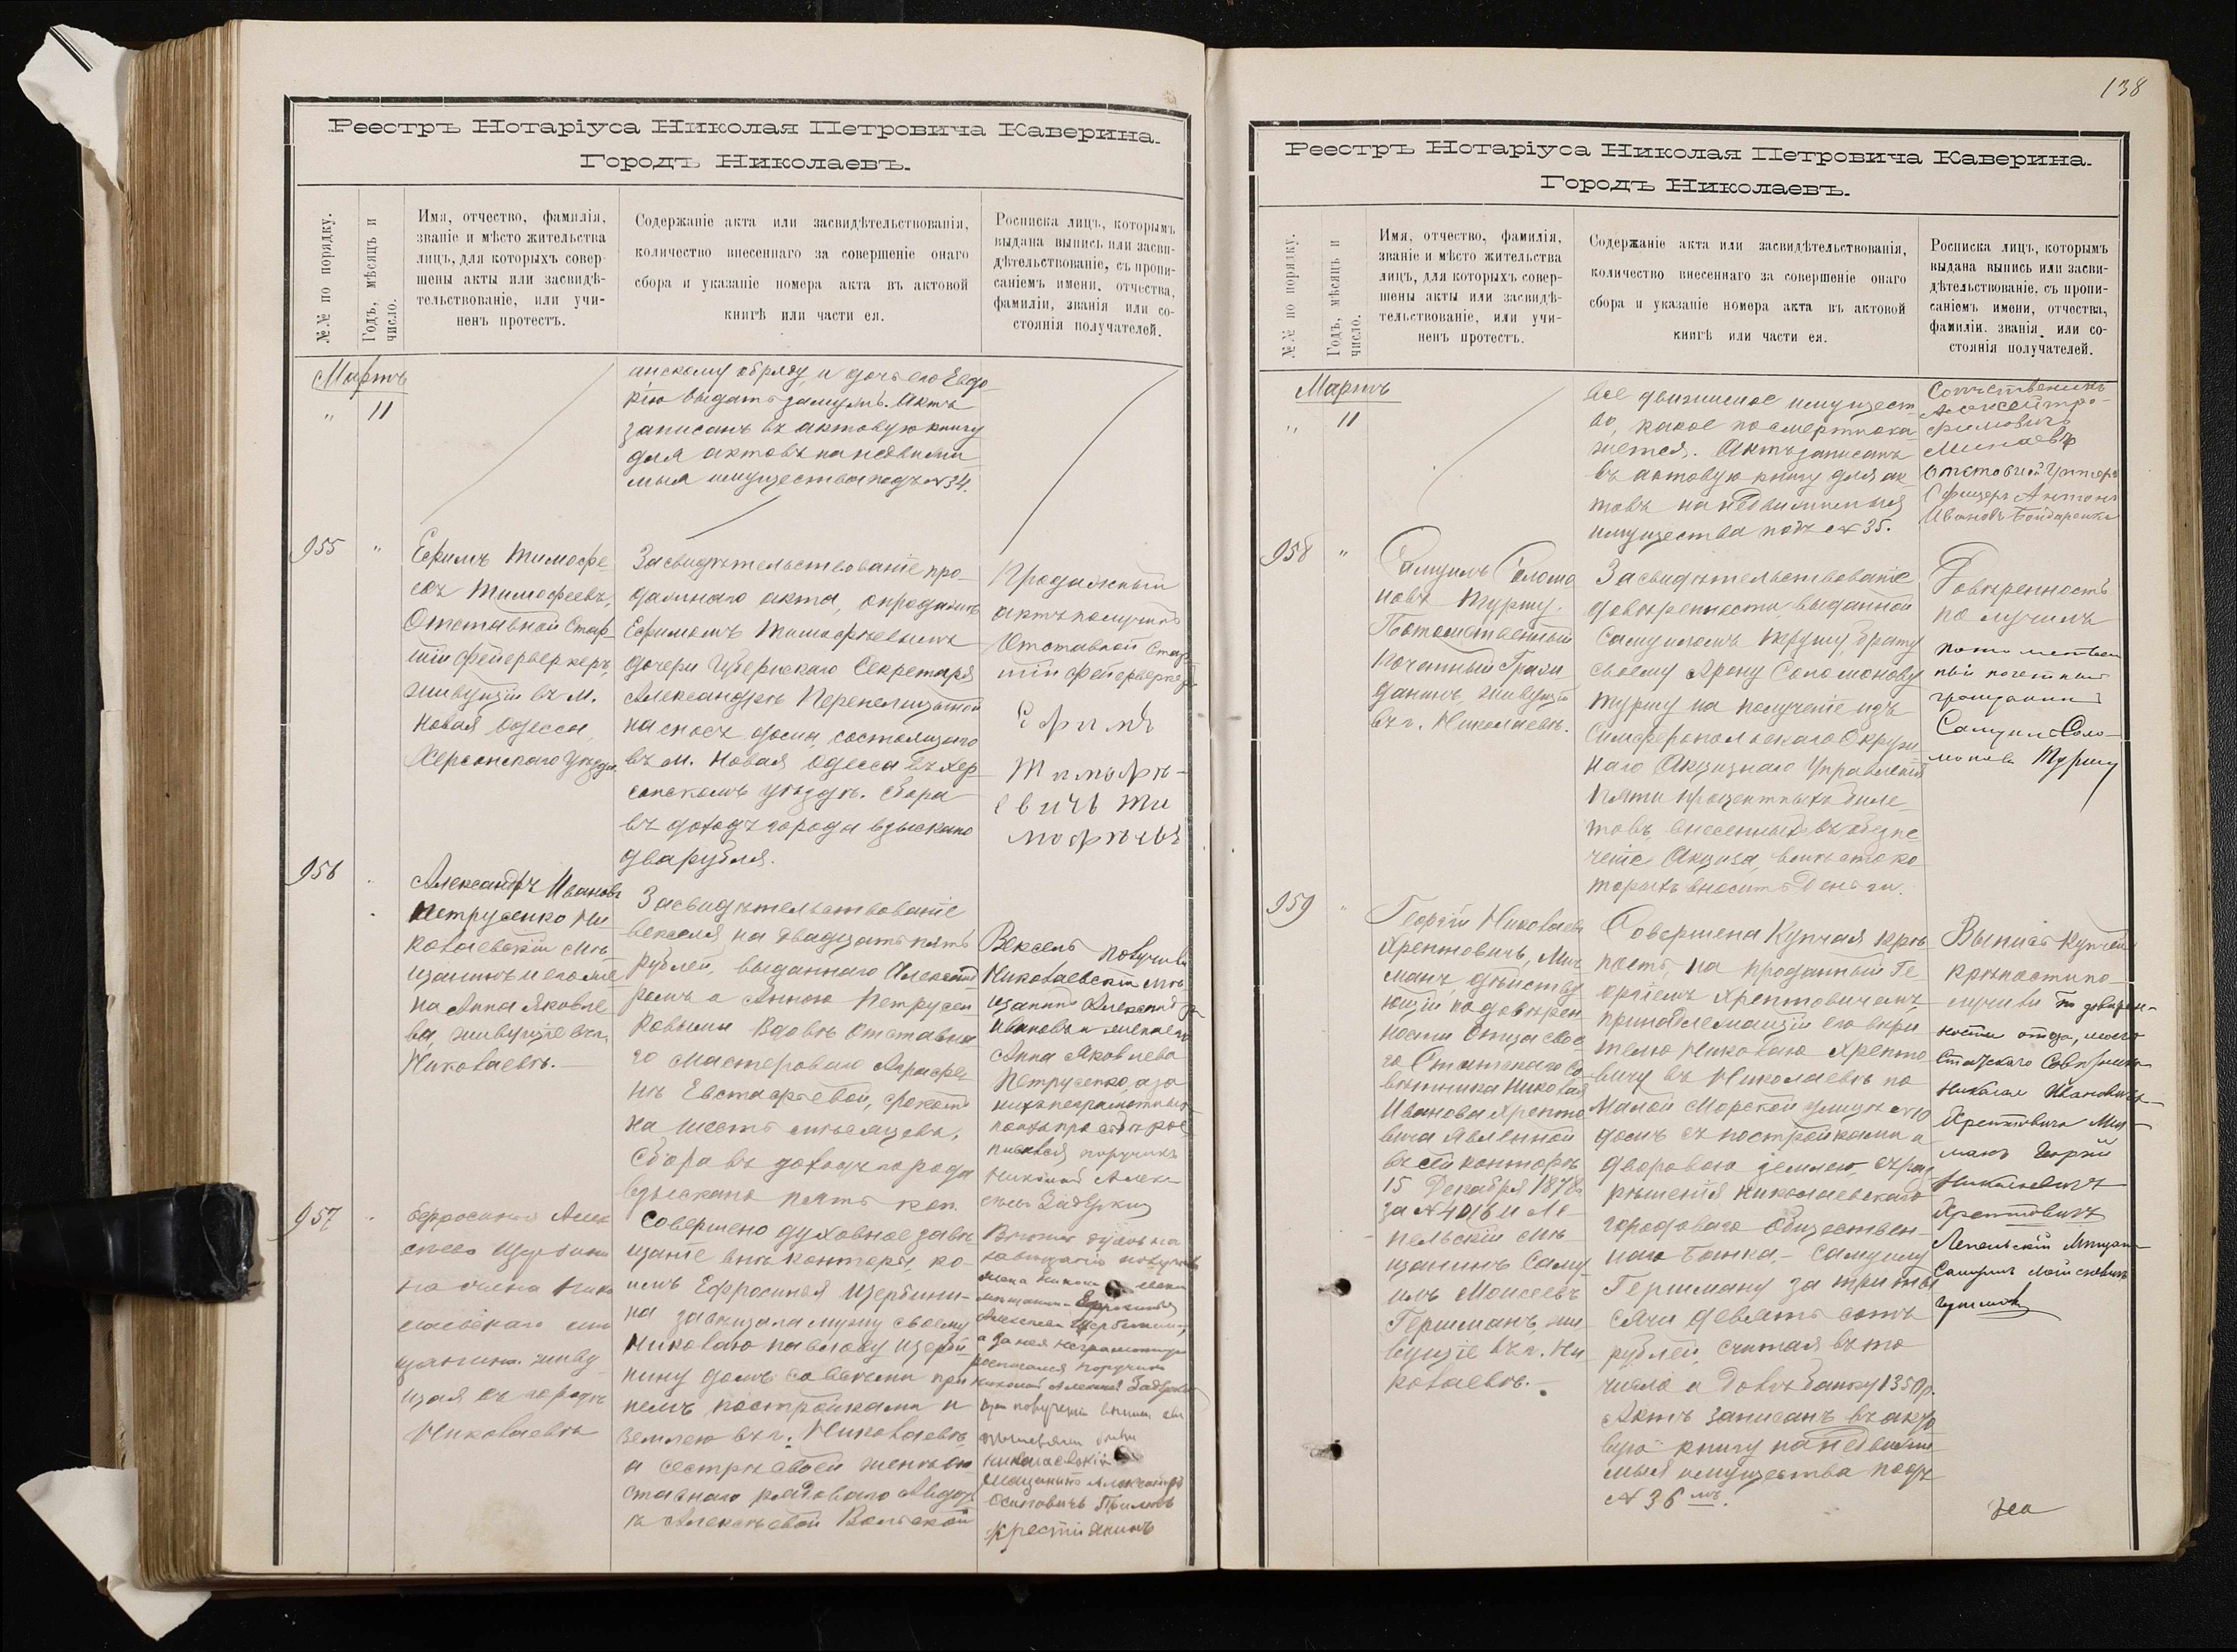 Реестръ Нотаріуса Николая Петровича Каверина.
Городъ Николаевъ.
№№ по порядку.
Годъ, мѣсяцъ и
число.
Имя, отчество, фамилія,
званіе и мѣсто жительства
лицъ, для которыхъ совер-
шены акты или засвидѣ-
тельствованіе, или учи-
ненъ протестъ.
Содержаніе акта или засвидѣтельствованія,
количество внесеннаго за совершеніе онаго
сбора и указаніе номера акта въ актовой
книгѣ или части ея.
Росписка лицъ, которымъ
выдана выпись или засви-
дѣтельствованіе, съ пропи-
саніемъ имени, отчества,
фамиліи, званія или со-
стоянія получателей.
Мартъ
" 11
анскому обряду, и дочь его Евдо
кію выдать замужъ. Актъ
записанъ въ актовую книгу
для актовъ на недвижи
мыя имущества подъ № 34.
955 "
Ефимъ Тимофе
евъ Тимофеевъ,
Отставной Стар-
шій фейерверкеръ,
живущій въ м.
Новая Одесса,
Херсонскаго уѣзда.
Засвидѣтельствованіе про-
дажнаго акта, о продажѣ
Ефимомъ Тимофѣевымъ
дочери Губернскаго Секретаря
Александрѣ Перепелицыной
на сносъ дома, состоящаго
въ м. Новая Одесса въ Хер
сонскомъ уѣздѣ. Сбора
въ доходъ города взыскано
два рубля.
Продажный
актъ получилъ
Отставной Стар
шій фейерверкеръ
Ефимъ
Тимофѣ-
евичъ Ти
мофѣевъ
956
Александръ Ивановъ
Петрусенко Ни
колаевскій мѣ
щанинъ и его же
на Анна Яковле
ва, живущіе въ г.
Николаевѣ.
Засвидѣтельствованіе
векселя, на двадцать пять
рублей, выданнаго Александ
ромъ и Анною Петрусен
ковыми вдовѣ Отставна
го мастероваго Аграфе
нѣ Евстафьевой, срокомъ
на шесть мѣсяцевъ.
Сбора въ доходъ города
взыскано пять коп.
Вексель получили
Николаевскій мѣ
щанинъ Александръ
Ивановъ и жена его
Анна Яковлева
Петрусенко, а за
нихъ неграмотныхъ
по ихъ просьбѣ рос
писался поручикъ
Николай Алек
сѣевъ
957
Ефросинья Алек
сѣева Щербини
на жена Нико
лаевскаго мѣ
щанина живу
щая въ городѣ
Николаевѣ
Совершено духовное завѣ
щаніе внѣ конторы, ко-
имъ Ефросинья Щербини-
на завѣщала мужу своему
Николаю Павлову Щерби-
нину домъ со всѣми при
немъ постройками и
землею въ г. Николаевѣ,
и сестрѣ своей женѣ от
ставнаго рядоваго Авдоть
ѣ Алексѣевой Вольской
Выпись духовна
завѣщанія получила
жена
мѣщанина Ефросинья
Алексѣева Щербинина,
а за нея неграмотную
росписался поручикъ
Николай Алексѣевъ
при полученіи выписи
Николаевскій
мѣщанинъ Александръ
Осиповичъ
крестіянинъ
138
Реестръ Нотаріуса Николая Петровича Каверина.
Городъ Николаевъ.
№№ по порядку.
Годъ, мѣсяцъ и
число.
Имя, отчество, фамилія,
званіе и мѣсто жительства
лицъ, для которыхъ совер-
шены акты или засвидѣ-
тельствованіе, или учи-
ненъ протестъ.
Содержаніе акта или засвидѣтельствованія,
количество внесеннаго за совершеніе онаго
сбора и указаніе номера акта въ актовой
книгѣ или части ея.
Росписка лицъ, которымъ
выдана выпись или засви-
дѣтельствованіе, съ пропи-
саніемъ имени, отчества,
фамиліи, званія или со-
стоянія получателей.
Мартъ
" 11
все движимое имущест
во, какое по смерти ока-
жется. Актъ записанъ
въ актовую книгу для ак
товъ на недвижимыя
имущества подъ № 35.
Алексей Тро-
фимовичъ
Минаевъ
Отставной Унтеръ
Офицеръ Антонъ
Ивановъ Бондаренко
958 "
Самуилъ Соломо
новъ Туршу.
Потомственный
Почетный Граж
данинъ, живущій
въ г. Николаевѣ.
Засвидѣтельствованіе
довѣренности, выданной
Самуиломъ Туршу, брату
своему Арону Соломонову
Туршу на полученіе изъ
Симферопольскаго Окруж
наго Акцизнаго Управленія
пяти процентныхъ биле
товъ, внесенныхъ въ обезпе
ченіе Акциза, вмѣсто ко
торыхъ вноситъ деньги.
Довѣренность
получилъ
потомствен
ный почетный
гражданинъ
Самуилъ Соло-
моновъ Туршу
959 "
Георгій Николаевъ
Хрептовичъ, Мич
манъ, дѣйству
ющій по довѣрен
ности Отца свое
го Статскаго Со
вѣтника Николая
Иванова Хрепто
вича явленной
въ сей конторѣ
15 Декабря 1878 г.
за № 4016 и Ле
пельскій мѣ
щанинъ Саму
илъ Моисеевъ
Гершманъ, жи
вущіе въ г. Ни
колаевѣ.
Совершена Купчая крѣ
пость, на проданный Ге
оргіемъ Хрептовичемъ,
принадлежащій его вѣри
телю Николаю Хрепто
вичу въ Николаевѣ по
Малой Морской улицѣ № 10
домъ съ постройками и
дворовою землею, съ раз
рѣшенія Николаевскаго
городоваго Обществен-
наго Банка, Самуилу
Гершману за три ты
сячи девятьсотъ
рублей, считая въ то
число и долгъ банку 1350 р.
Актъ записанъ въ акто
вую книгу на недвижи
мыя имущества подъ
№ 36 мъ.
Выпись Купчей
крѣпости по-
лучили по довѣрен-
ности отца, моего
Статскаго Совѣтника
Николая Ивановича
Хрептовича Мич
манъ Георгій
Николаевичъ
Хрептовичъ
Лепельскій Мѣщан-
Самуилъ Мойсеевичъ
Гершманъ